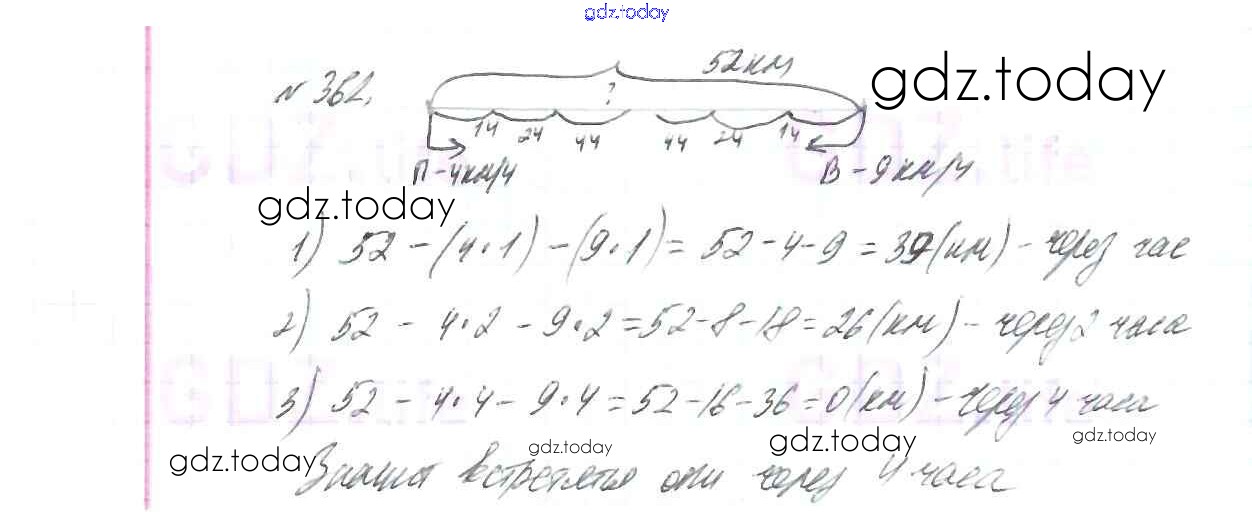 gdz.today
52км
№ 362.
gdz.today
?
1ч 2ч 4ч 4ч 2ч 1ч
П - 4км/ч В - 9км/ч
gdz.today
1) 52 - (4·1) - (9·1) = 52 - 4 - 9 = 39(км) - через час
2) 52 - 4·2 - 9·2 = 52 - 8 - 18 = 26(км) - через 2 часа
3) 52 - 4·4 - 9·4 = 52 - 16 - 36 = 0(км) - через 4 часа
gdz.today gdz.today gdz.today gdz.today
Значит встретятся они через 4 часа